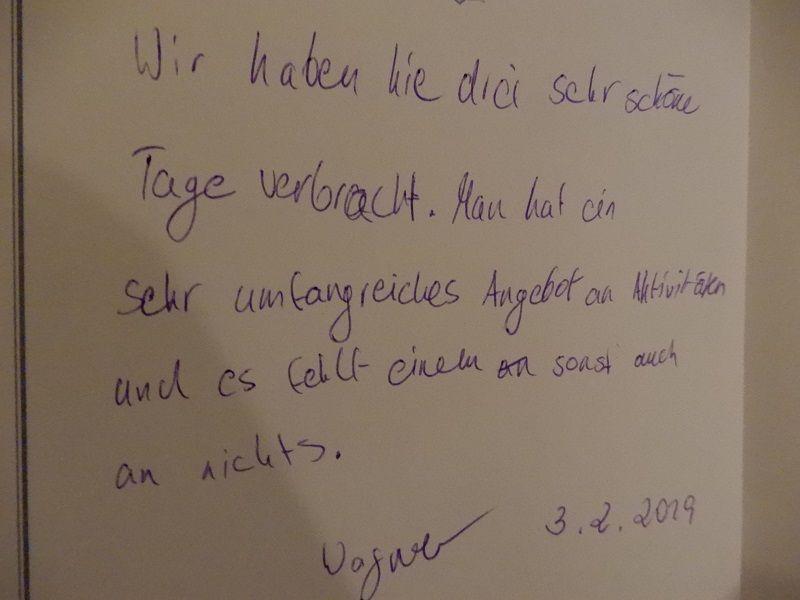 Wir haben hie drei sehr schöne
Tage verbracht. Man hat ein
sehr umfangreiches Angebot an Aktivitäten
und es fehlt einem an sonst auch
an nichts.
Wagner 3.2.2019